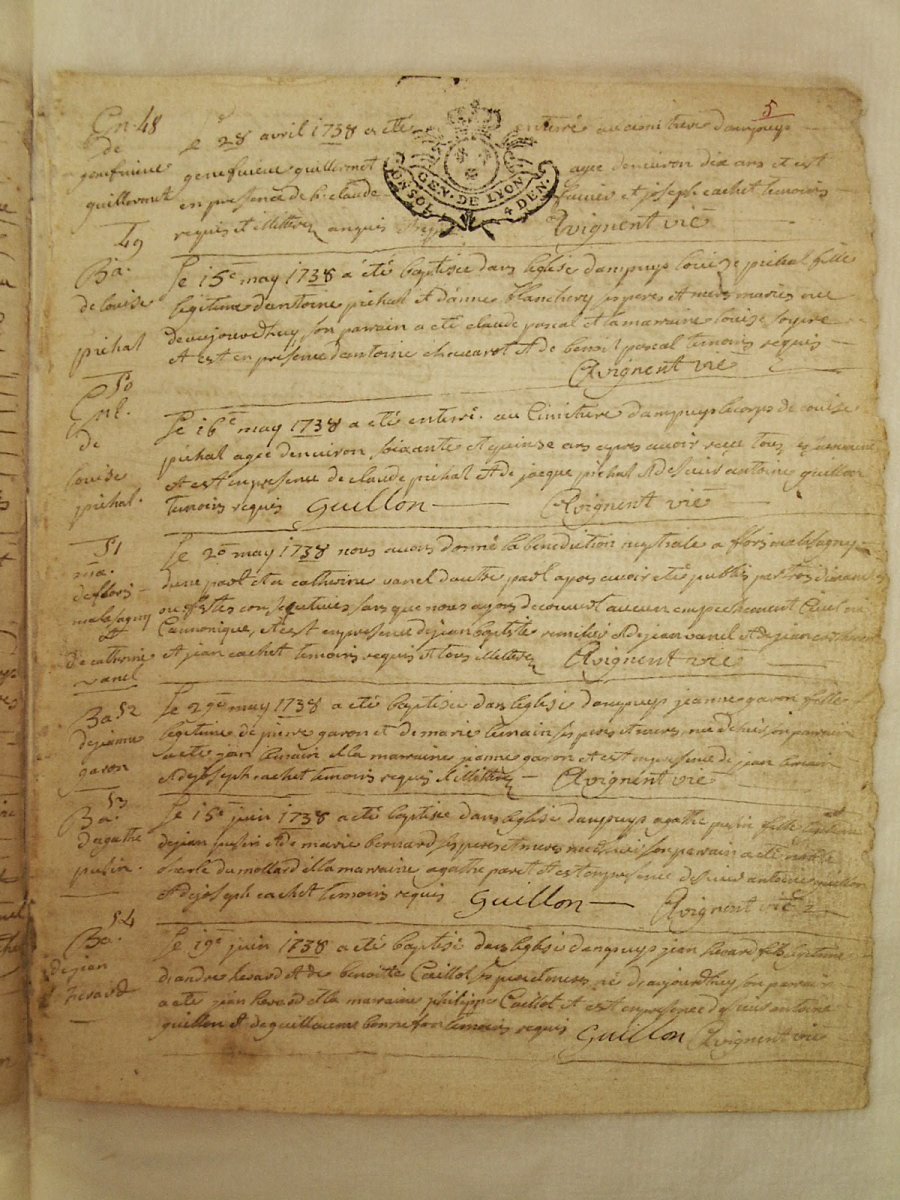 5
En. 48
de
genefvieve
guillermet
le 28 avril 1738 a eté enterré au cimitiere dampuys
genefvieve guillermet agee denviron dix ans et est
en presence de claude et joseph cachet temoins
requis et illitterez anquis
Avignent vic
GEN. DE LYON
UN SOL 4 DEN.
49
Ba.
de louise
pichal
Le 15e may 1738 a été baptisée dans leglise dampuys louise pichal fille
legitime dantoine pichal et danne blanchery ses pere et mere mariés née
daujourdhuy son parain a eté claude pascal et la maraine louise
et est en presence dantoine chavarot et de benoit pascal temoins requis
Avignent vic
50
Ent.
de
louise
pichal.
Le 16e may 1738 a eté enterré au cimitiere dampuys le corps de louise
pichal agée denviron soixante et quinse ans apres avoir reçu tous
et est en presence de claude pichal et de jacque pichal et de sieur antoine guillon
temoins requis Guillon Avignent vic
51
ma.
de flors
malesagny
et
de catherine
vanel
Le 20 may 1738 nous avons donné la benediction nuptiale a flors malesagny
dune part et a catherine vanel dautre part apres avoir eté publiés par trois dimanches
ou festes consequtives sans que nous ayons decouvert aucun empeschement civil ni
cannonique, et cest en presence de jean baptiste remilier et de jean vanel et de jean
et jean cachet temoins requis et tous illitterez Avignent vic
Ba. 52
de jeanne
garon
Le 29e may 1738 a eté baptisée dans leglise dampuys jeanne garon fille
legitime de pierre garon et de marie ses pere et mere, née dhier son parain
a eté jean et la maraine jeanne garon et est en presence de jean
et de joseph cachet temoins requis et illitterez Avignent vic
53
Ba.
dagathe
pusin.
Le 15e juin 1738 a eté baptisée dans leglise dampuys agathe pusin fille legitime
de jean pusin et de marie bernard ses pere et mere née dhier son parain a eté
du mollard et la maraine agathe paret et est en presence de sieur antoine guillon
et de joseph cachet temoins requis Guillon Avignent vic
54
Ba.
de jean
Le 19e juin 1738 a eté baptisé dans leglise dampuys jean fils legitime
dandre et de benoitte Caillot ses pere et mere, né daujourdhuy son parain
a eté jean et la maraine philippe Caillot et est en presence de sieur antoine
guillon et de guillaume bonnefon temoins requis Guillon Avignent vic